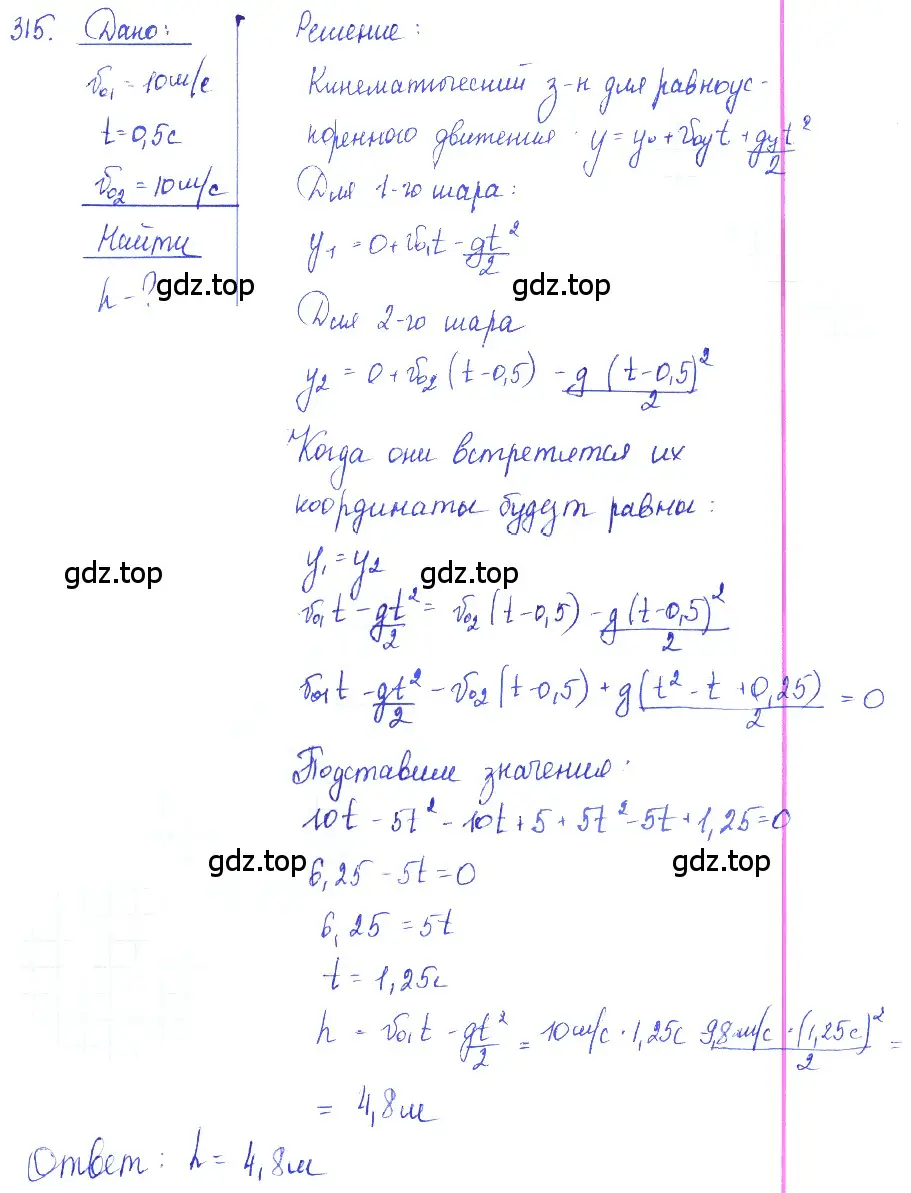 315. Дано:
v₀₁ = 10м/с
t = 0,5с
v₀₂ = 10м/с
Найти
h - ?
gdz.top
Решение:
Кинематический з-н для равноус-
коренного движения: y = y₀ + v₀yt + gyt²/2
Для 1-го шара:
y₁ = 0 + v₀₁t - gt²/2
gdz.top
Для 2-го шара
y₂ = 0 + v₀₂(t-0,5) - g(t-0,5)²/2
Когда они встретятся их
координаты будут равны:
gdz.top
y₁ = y₂
gdz.top
v₀₁t - gt²/2 = v₀₂(t-0,5) - g(t-0,5)²/2
v₀₁t - gt²/2 - v₀₂(t-0,5) + g(t² - t + 0,25)/2 = 0
Подставим значения:
10t - 5t² - 10t + 5 + 5t² - 5t + 1,25 = 0
gdz.top
gdz.top
6,25 - 5t = 0
6,25 = 5t
t = 1,25с
h = v₀₁t - gt²/2 = 10м/с · 1,25с 9,8м/с · (1,25с)²/2 =
= 4,8м
Ответ: h = 4,8м